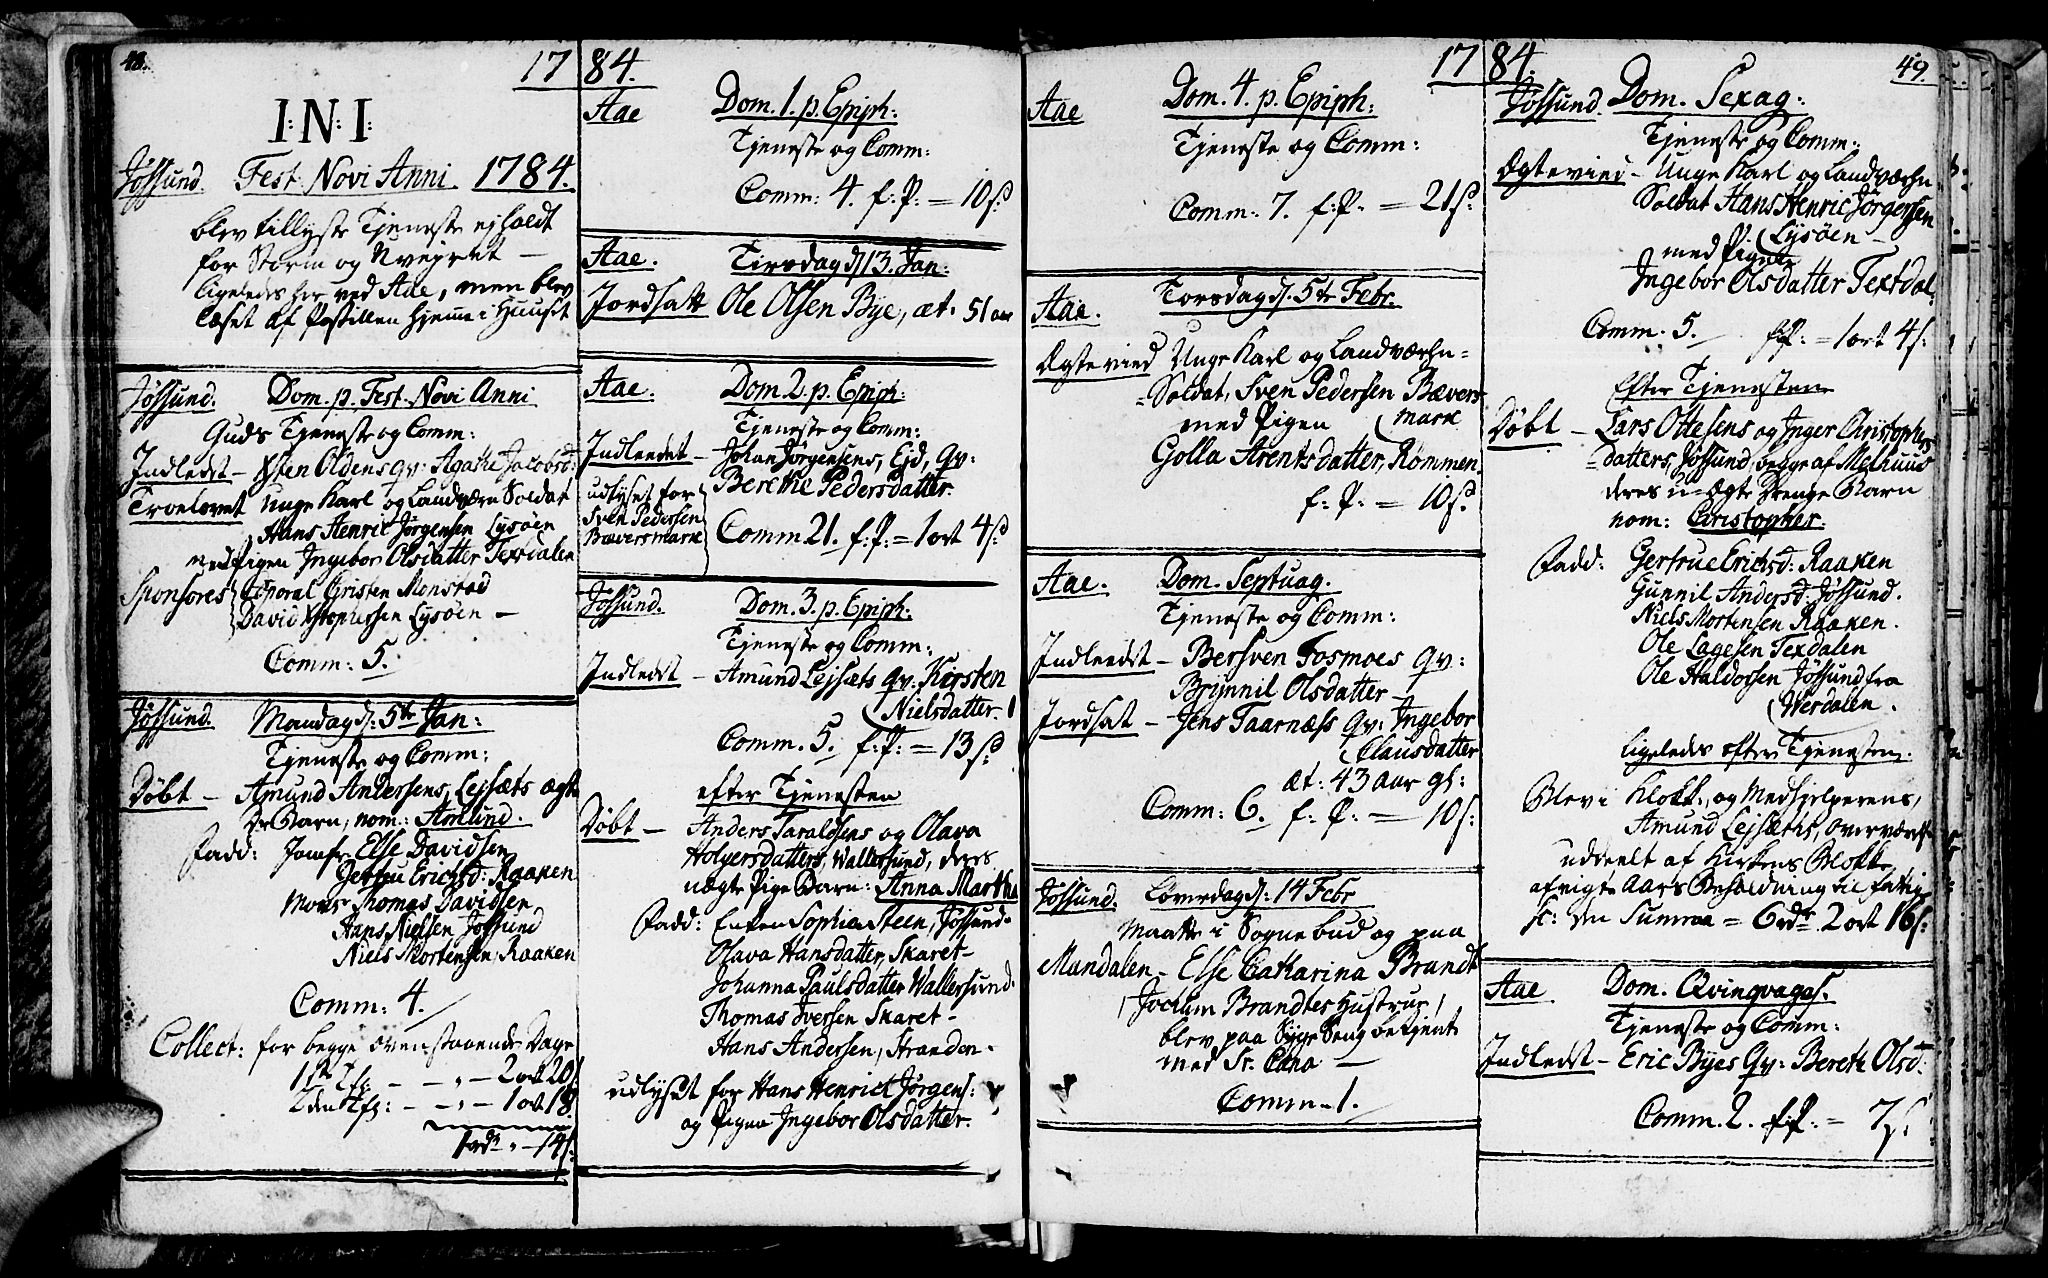 48.
17 84.
I: N: I:
Jøssund. Fest. Novi Anni 1784.
blev tillyste Tjeneste ej holdt
for Storm og Uvejret –
ligeledes her ved Aae, men blev
læset af Postillen hjemme i Huuset
Jøssund. Dom. p. Fest. Novi Anni
Guds Tjeneste og Comm:
Indledt – Xsten Oldens qv: Agathe Jacobsd:
Troelovet Unge Karl og Landværn Soldat
Hans Henric Jørgensen Lysøen
med Pigen Ingebor Olsdatter Texdalen
Sponsores Coporal Christen Monstad
David Xstophersen Lysøen –
Comm: 5.
Jøssund. Mandag d: 5te Jan:
Tjeneste og Comm:
Døbt – Amund Andersens, Lejsæts ægte
Barn, nom: Amund.
Fadd: Jomfr. Else Davidsen
Gertru Ericsd: Raaken
Mons. Thomas Davidsen
Hans Nielsen Jøssund
Niels Mortensen, Raaken
Comm: 4.
Collect: for begge ovenstaaende Dage
1ste Tfr: – – „ – 2 ort 20 s
2den Tfr: – – „ – 1 ort 18
1 rdr „ – 14 s:
Aae Dom. 1. p. Epiph:
Tjeneste og Comm:
Comm: 4. f: P: = 10 s:
Aae. Tirsdag d 13. Jan:
Jordsatt Ole Olsen Bye, æt: 51 aar
Aae. Dom. 2. p. Epiph:
Tjeneste og Comm:
Indleedet – Johan Jørgensens, Eid, qv:
Berethe Pedersdatter.
udlyset for
Sven Pedersen
Bæversmark
Comm 21. f: P: = 1 ort 4 s
Jøssund. Dom. 3. p. Epiph:
Tjeneste og Comm:
Indledt – Amund Lejsæts qv: Kirsten
Nielsdatter.
Comm. 5. f: P: = 13 s:
efter Tjenesten
Døbt – Anders Taraldsens og Olava
Holgersdatters, Wallersund, deres
uægte Pige Barn: Anna Martha
Fadd: Enken Sophia Steen, Jøssund.
Olava Hansdatter, Skaret –
Johanna Paulsdatter Wallersund.
Thomas Iversen Skaret –
Hans Andersen, Stranden.
udlyset for Hans Henrich Jørgens:
og Pigen Ingebor Olsdatter.
17 84.
49.
Aae Dom. 4. p. Epiph:
Tjeneste og Comm:
Comm: 7. f: P: = 21 s:
Aae. Torsdag d. 5te Febr.
Ægtevied Unge Karl og Landværn-
Soldat, Sven Pedersen Bævers
mark
med Pigen
Golla Arentsdatter, Rømmen
f: P: = 10 s.
Aae. Dom. Septuag.
Tjeneste og Comm:
Indleedt – Bersven Fosmoes qv:
Brynnil Olsdatter
Jordsat – Jens Taarnæss qv: Ingebor
Clausdatter
æt: 43 aar gl:
Comm: 6. f: P: – 10 s:
Jøssund. Løverdag d: 14 Febr
Maatte i Sognebud og paa
Mandalen – Else Catharina Brandt
Jochum Brandtes Hustrue,
blev paa Syge Seng betjent
med Sr. Cæna –
Comm – 1.
Jøssund. Dom. Sexag:
Tjeneste og Comm:
Ægteviet – Unge Karl og Landværn
Soldat Hans Henric Jørgensen
Lysøen –
med Pigen
Ingebor Olsdatter Texdal.
Comm: 5. f: P: = 1 ort 4 s.
Efter Tjenesten
Døbt – Lars Ottesens og Inger Christophers
Datters, Jøssund, begge af Melhuus
deres u-Ægte Drenge Barn
nom: Christopher.
Fadd: Gertrue Erichsd: Raaken
Gunnil Andersd. Jøssund.
Niels Mortensen Raaken.
Ole Lagesen Texdalen
Ole Haldorsen Jøssund fra
Werdalen.
Ligeledes efter Tjenesten.
Blev i Klokk., og Medhjelperens,
Amund Lejsæths, overværelse
uddeelt af Kirkens Blokk
afvigte Aars Beholdning til fattig
sc: den Summa = 6 rdr 2 ort 16 s:
Aae Dom. Qvinqvages.
Tjeneste og Comm:
Indledt – Eric Byes Qv: Bereth Olsd:
Comm. 2. f: P. – 7 s.